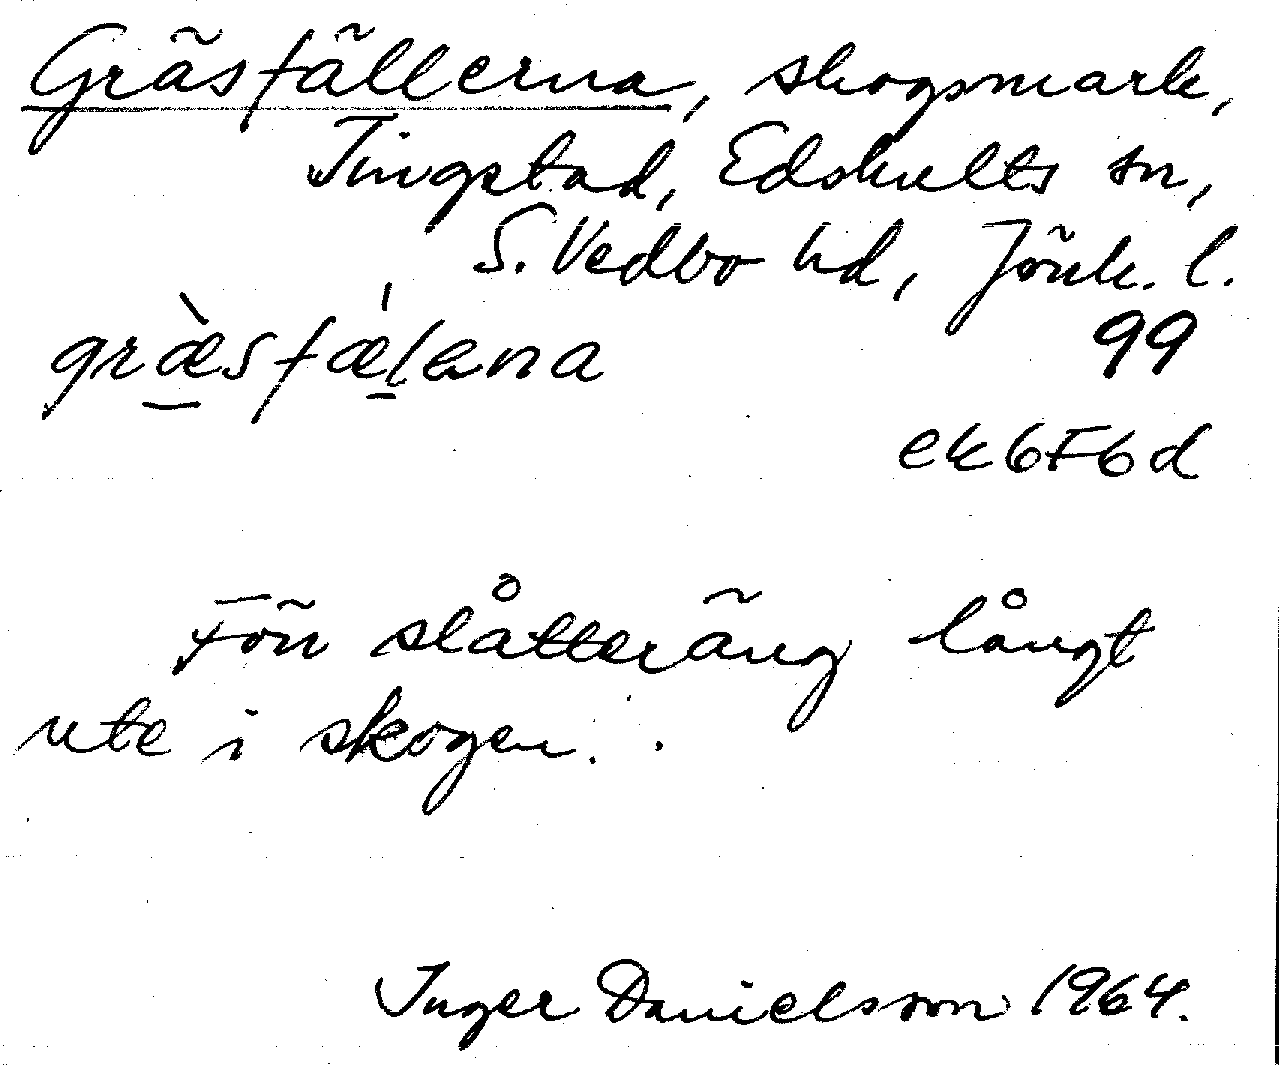 Gräsfällerna, skogsmark,
Tingstad, Edshults sn,
S. Vedbo hd, Jönk. l.
græ̀sfæ̍lena
99
ek6F6d
Förr slåtteräng långt
ute i skogen.
Inger Danielsson 1964.